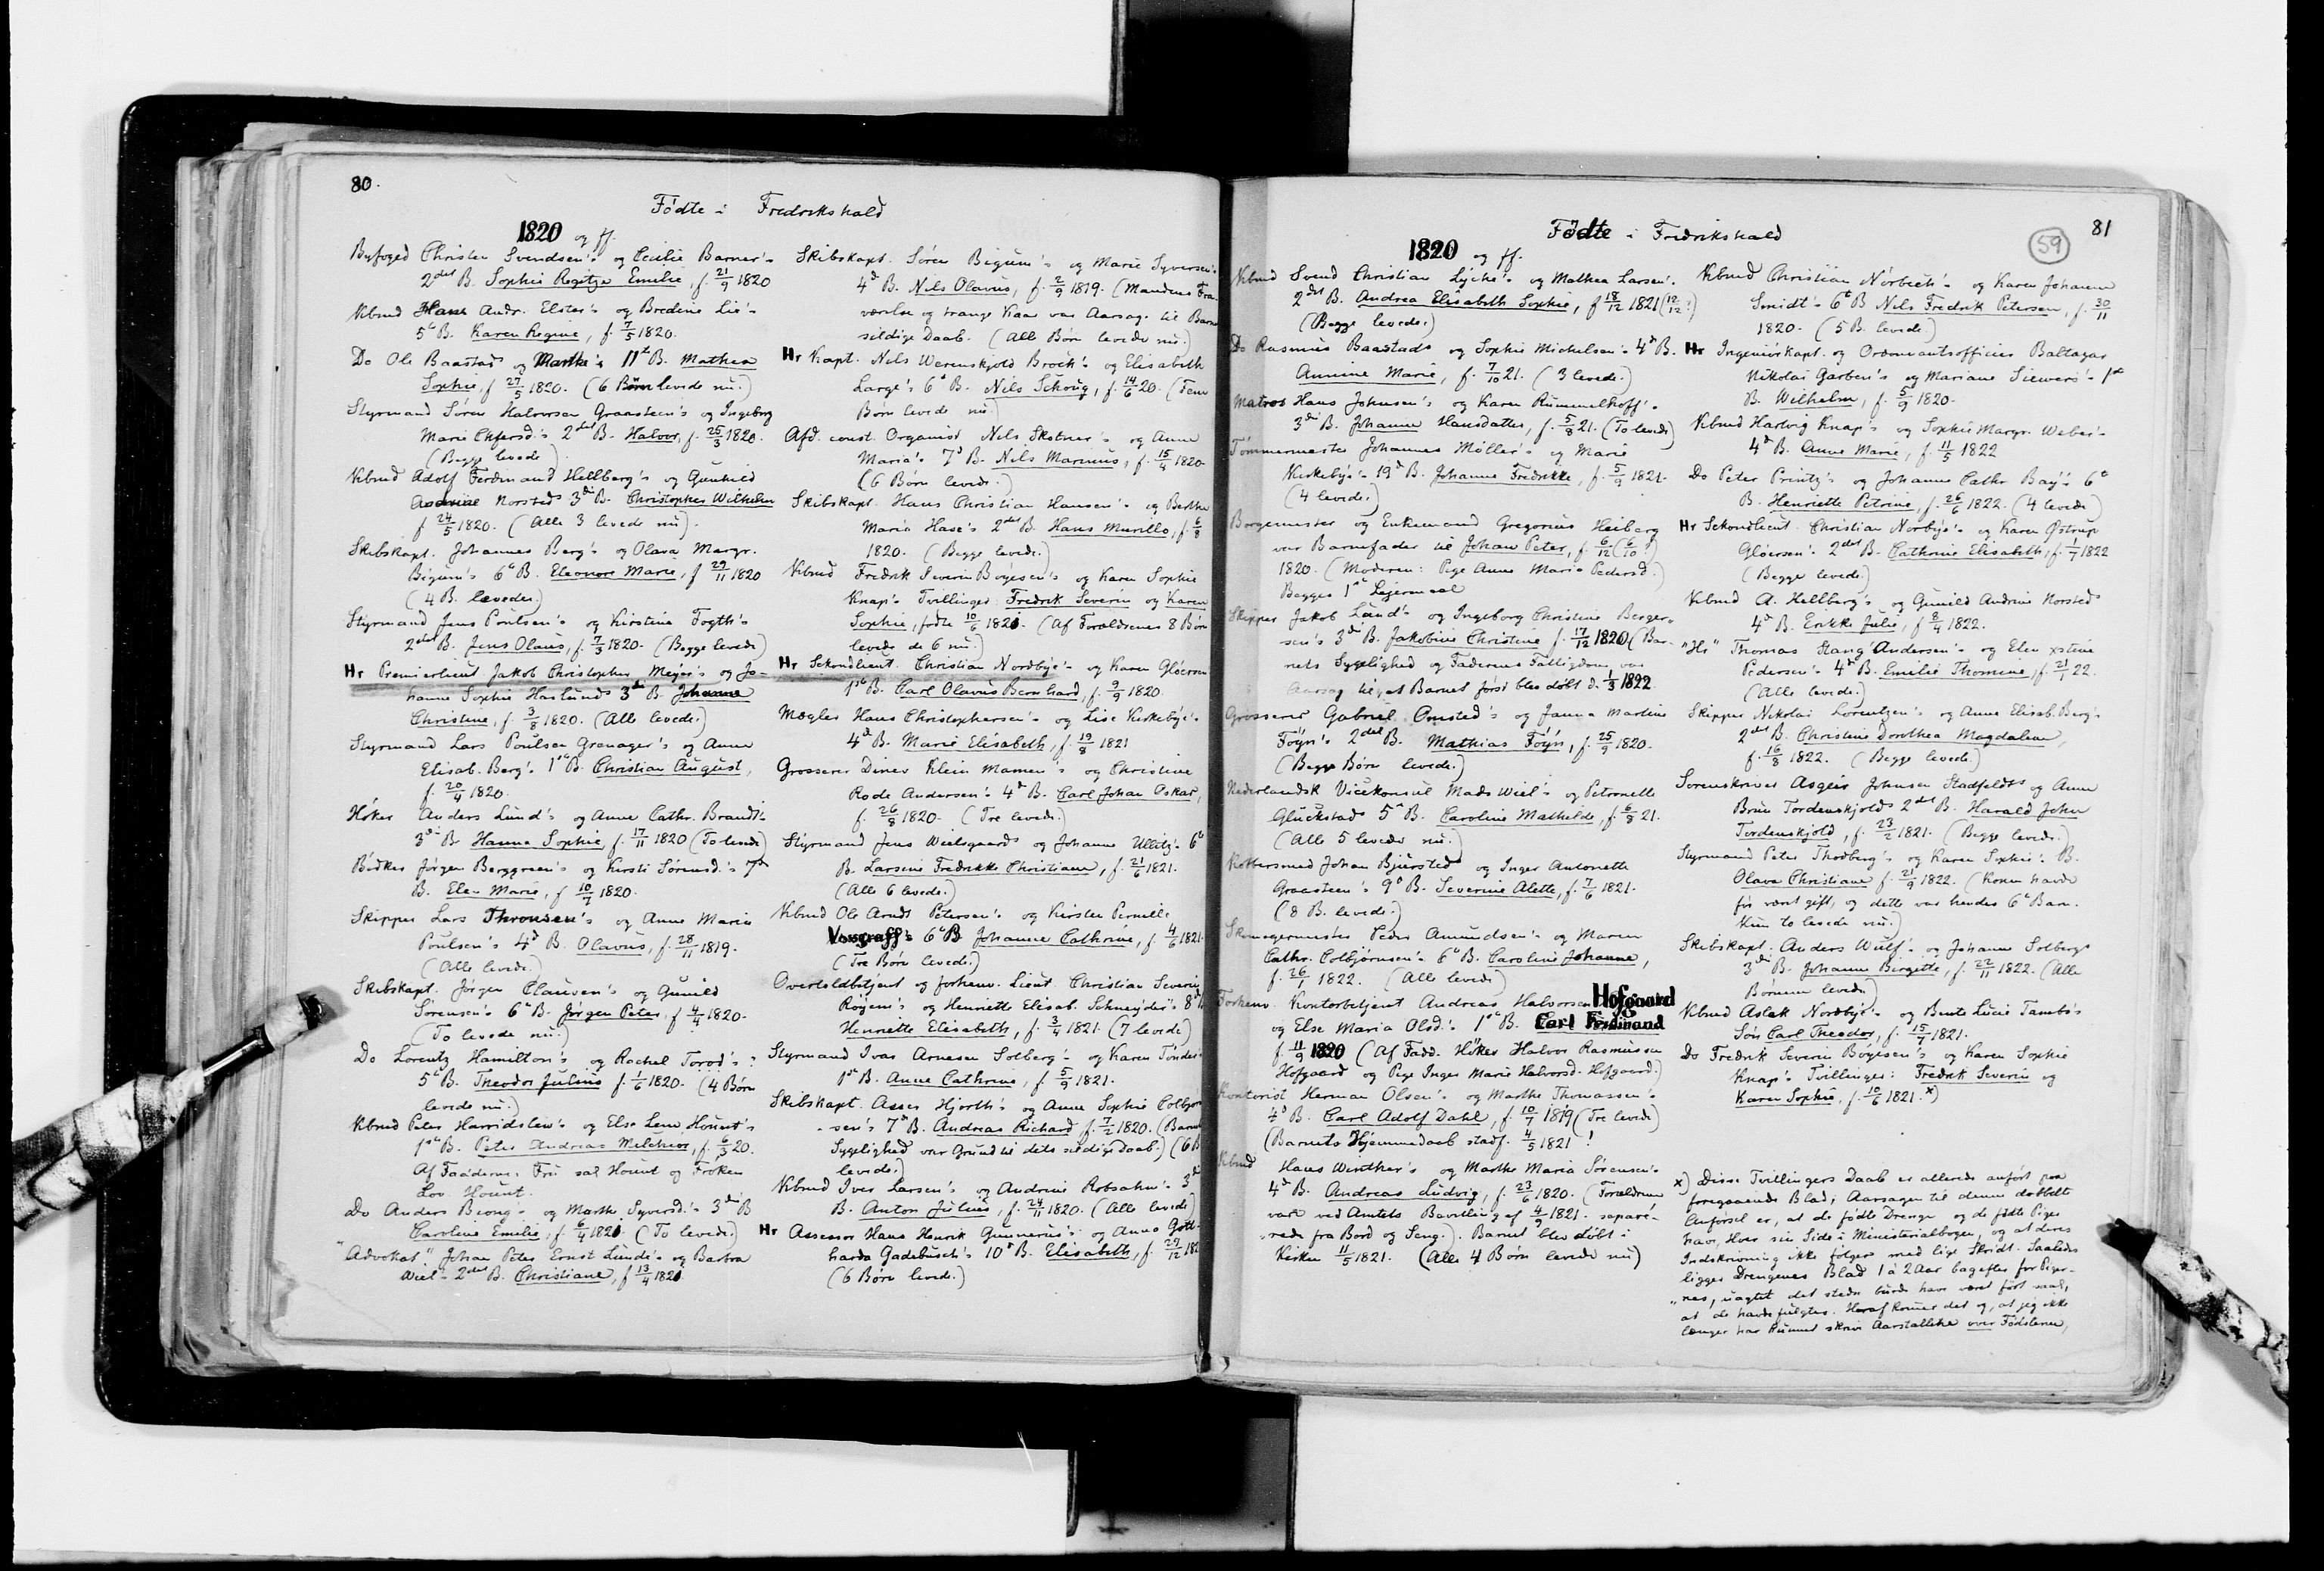 80.
Födte i Fredrikshald
1820 og ff.
Byfoged Christen Svendsen's og Cecilie Barner's
2det B. Sophie Regitze Emilie, f. 21/9 1820
Kbmd Hans Andr. Elster's og Bredine Lie's
5te B. Karen Regine, f. 7/5 1820.
Do Ole Baastad's og Marthe's 11te B. Mathea
Sophie, f. 27/5 1820. (6 Børn levede nu.)
Styrmand Søren Halvorsen Graasteen's og Ingeborg
Marie 2det B. Halvor, f. 25/3 1820.
(Begge levede)
Kbmd Adolf Ferdinand Hellberg's og Gunhild
Andrine Norsted's 3die B. Christopher Wilhelm
f. 24/5 1820. (Alle 3 levede nu).
Skibskapt. Johannes Berg's og Olava Margr.
Bigum's 6te B. Eleonore Marie, f. 29/11 1820
(4 B. levede.)
Styrmand Jens Poulsen's og Kirstine Fogth's
2det B. Jens Olaus, f. 7/3 1820. (Begge levede)
Hr Premierlieut Jakob Christopher Meyer's og Jo-
hanne Sophie Haslund's 3die B. Johanne
Christine, f. 3/8 1820. (Alle levede.)
Styrmand Lars Poulsen Grenager's og Anne
Elisab. Berg's 1ste B. Christian August,
f. 20/4 1820.
Höker Anders Lund's og Anne Cathr. Brandt's
3die B. Hanna Sophie, f. 17/11 1820 (To levede)
Bödker Jørgen Berggreen's og Kirsti Sörensd.'s 7de
B. Elen Marie, f. 10/7 1820.
Skipper Lars Thronsen's og Anne Marie
Poulsen's 4de B. Olavus, f. 28/11 1819.
(Alle levede.)
Skibskapt. Jørgen Clausen's og Gunild
Sörensen's 6te B. Jörgen Peter, f. 4/4 1820.
(To levede nu.)
Do Lorentz Hamilton's og Rachel Torod's:
5te B. Theodor Julius f. 1/6 1820. (4 Börn
levede nu.)
Kbmd Peter Harridslew's og Else Lene Hount's
1ste B. Peter Andreas Melchior, f. 6/3 20.
Af Fadderne: Fru sal Hount og Frøken
Lov. Hount.
Do Anders Biong's og Marthe Syversd.'s 3die B
Caroline Emilie, f. 6/4 1820 (To levede.)
"Advokat" Johan Peter Ernst Lunde's og Barbra
Wiel's 2det B. Christiane, f. 13/4 1820
Skibskapt. Sören Bigum's og Marie Syversen's
4de B. Nils Olavus, f. 2/9 1819. (Mandens Fra-
værelse og trange Kaar var Aarsag til Barnets
sildige Daab. (Alle Børn levede nu.)
Hr Kapt. Nils Werenskjold Brock's og Elisabeth
Large's 6te B. Nils Schoug, f. 14/6 20. (Fem
Børn levede nu.)
Afd. const. Organist Nils og Anne
Maria's 7de B. Nils Marinus, f. 15/4 1820.
(6 Børn levede.)
Skibskapt. Hans Christian Hansen's og Berthe
Maria Hase's 2det B. Hans Murillo, f. 6/8
1820. (Begge levede.)
Kbmd Fredrik Severin Boyesen's og Karen Sophie
Knap's Tvillinger: Fredrik Severin og Karen
Sophie, fødte 10/6 1821. (Af Forældrenes 8 Børn
levede de 6 nu.)
Hr Sekondlieut. Christian Nordbye's og Karen Glöersen
1ste B. Carl Olavus Bernhard, f. 9/9 1820.
Mægler Hans Christophersen's og Lise Kirkebye's
4de B. Marie Elisabeth, f. 19/8 1821
Grosserer Diness Klein Mamen's og Christine
Rode Andersen's 4de B. Carl Johan Oskar,
f. 26/8 1820. (Tre levede.)
Styrmand Jens Wielsgaard's og Johanne Ullitz's 6te
B. Larsine Fredrikke Christiane, f. 21/6 1821.
(Alle 6 levede.)
Kbmd Ole Arndt Petersen's og Kirsten Pernille
Vorgraff's 6te B Johanne Cathrine, f. 4/6 1821.
(Tre Børn levede.)
Overtoldbetjent og forhenv. Lieut Christian Severin
Röyem's og Henriette Elisab. Schneyder's 8de
Henriette Elisabeth, f. 3/4 1821. (7 levede)
Styrmand Ivar Arnesen Solberg's og Karen Tönder
1ste B. Anne Cathrine, f. 5/9 1821.
Skibskapt. Asser Hjorth's og Anne Sophie Colbjørn
sen's 7de B. Andreas Richard f. 7/2 1820. (Barnets
Sygelighed var Grund til dets sildige Daab.) (6 B.
levede.)
Kbmd Iver Larsen's og Andrine Robsahm's 3die
B. Anton Julius, f. 24/11 1820. (Alle levede)
Hr Assessor Hans Henrik Gunnerius's og Anna Gott-
harda Gadebusch's 10de B. Elisabeth, f. 29/12 182
(6 Børn levede.)
81
59
Födte i Fredrikshald
1820 og ff.
Kbmd Svend Christian Lyche's og Mathea Larsen's
2det B. Andrea Elisabeth Sophie, f 18/12 1821 (12/12?)
(Begge levede.)
Do Rasmus Baastad's og Sophie Michelsen's 4de B.
Annine Marie, f. 7/10 21. (3 levede.)
Matros Hans Johnsen's og Karen Rummelhoff's
3die B. Johanne Hansdatter, f. 5/8 21. (To levede)
Tömmermester Johannes Möller's og Marie
Kirkebye's 19de B. Johanne Fredrikke, f. 5/9 1821.
(4 levede.)
Borgermester og Enkemand Gregorius Heiberg
var Barnefader til Johan Peter, f. 6/12 (6/10?)
1820. (Moderen: Pige Anne Maria Pedersd.)
Begges 1ste Lejermaal
Skipper Jakob Lund's og Ingeborg Christine Berger-
sen's 3die B. Jakobine Christine f. 17/12 1820 (Bar-
nets Sygelighed og Faderens Fattigdom var
Aarsag til, at Barnet først blev døbt d. 1/3 1822.
Grosserer Gabriel Omsted's og Janna Martine
Föyn's 2det B. Mathias Föyn, f. 25/9 1820.
(Begge Børn levede.)
Nederlandsk Vicekonsul Mads Wiel's og Petronelle
Glückstad's 5te B. Caroline Mathilde, f. 6/8 21.
(Alle 5 levede nu.)
Kobbersmed Johan Bjursted's og Inger Antonette
Graasteen's 9de B. Severine Alette, f. 7/6 1821.
(8 B. levede.)
Skomagermester Peder Amundsen's og Maren
Cathr. Colbjörnsen's 6te B. Caroline Johanne,
f. 26/1 1822. (Alle levede)
Forhenv. Kontorbetjent Andreas Halvorsen Hofgaard
og Else Maria Olsd.'s 1ste B. Carl Ferdinand
f. 11/9 1820 (Af Fadd. Höker Halvor Rasmussen
Hofgaard og Pige Inger Marie Halvorsd. Hofgaard.)
Kontorist Herman Olsen's og Marthe Thomassen's
4de B. Carl Adolf Dahl, f. 10/7 1819 (Tre levede)
(Barnets Hjemmedaab stadf. 4/5 1821!
Kbmd Hans Winther's og Marthe Maria Sörensen's
4de B. Andreas Ludvig, f. 23/6 1820. (Forældrene
vare ved Amtets Bevilling af 4/9 1821. separe-
rede fra Bord og Seng). Barnet blev döbt i
Kirken 11/5 1821. (Alle 4 Børn levede nu)
Kbmd Christian Nörbech's og Karen Johanne
Smidt's 6te B Nils Fredrik Petersen, f. 30/11
1820. (5 B. levede)
Hr Ingeniørkapt. og Ordonnantsofficier Baltazar
Nikolai Garben's og Mariane Siewers's 1ste
B. Wilhelm, f. 5/9 1820.
Kbmd Hartvig Knap's og Sophie Margr. Weber's
4de B. Anne Marie, f. 11/5 1822
Do Peter Printz's og Johanne Cathr Bay's 6te
B. Henriette Petrine, f. 26/6 1822. (4 levede)
Hr Sekondlieut. Christian Norbye's og Karen Östrup
Glöersen's 2det B. Cathrine Elisabeth, f. 1/7 1822
(Begge levede.)
Kbmd A. Hellberg's og Gunild Andrine Norsted's
4de B. Erikke Julie, f. 8/4 1822.
"Hr" Thomas Stang Andersen's og Elen xstine
Pedersen's 4de B. Emilie Thomine, f. 21/1 22.
(Alle levede.)
Skipper Nikolai Lorentzen's og Anne Elisab. Berg's
2det B. Christine Dorothea Magdalene,
f. 16/8 1822. (Begge levede.)
Sorenskriver Asgeir Johnsen Stadfeldt's og Anne
Brun Tordenskjold's 2det B. Harald John
Tordenskjold, f. 23/2 1821. (Begge levede.)
Styrmand Peter Thodberg's og Karen Sophie's B.
Olava Christiane f. 21/9 1822. (Konen havde
før været gift, og dette var hendes 6te Barn.
Kun to levede nu.)
Skibskapt. Anders Wulf's og Johanne Solberg's
3die B. Johanne Birgitte, f. 22/11 1822. (Alle
Børnene levede)
Kbmd Aslak Nordbye's og Bente Lucie Tambs's
Søn Carl Theodor, f. 15/7 1821.
Do Fredrik Severin Boyesen's og Karen Sophie
Knap's Tvillinger: Fredrik Severin og
Karen Sophie, f. 10/6 1821. x)
x) Disse Tvillingers Daab er allerede anført paa
foregaaende Blad; Aarsagen til denne dobbelte
Anførsel er, at de fødte Drenge og de fødte Piger
have, Hver sin Side i Ministerialbogen, og at deres
Indskrivning ikke følges med lige Skridt. Saaledes
ligger Drengenes Blad 1 à 2 Aar bagefter for Piger-
nes, uagtet det stedse burde have været ført saa,
at de havde fulgtes. Heraf kommer det og, at jeg ikke
længer har kunnet skrive Aarstallene over Fødslerne,